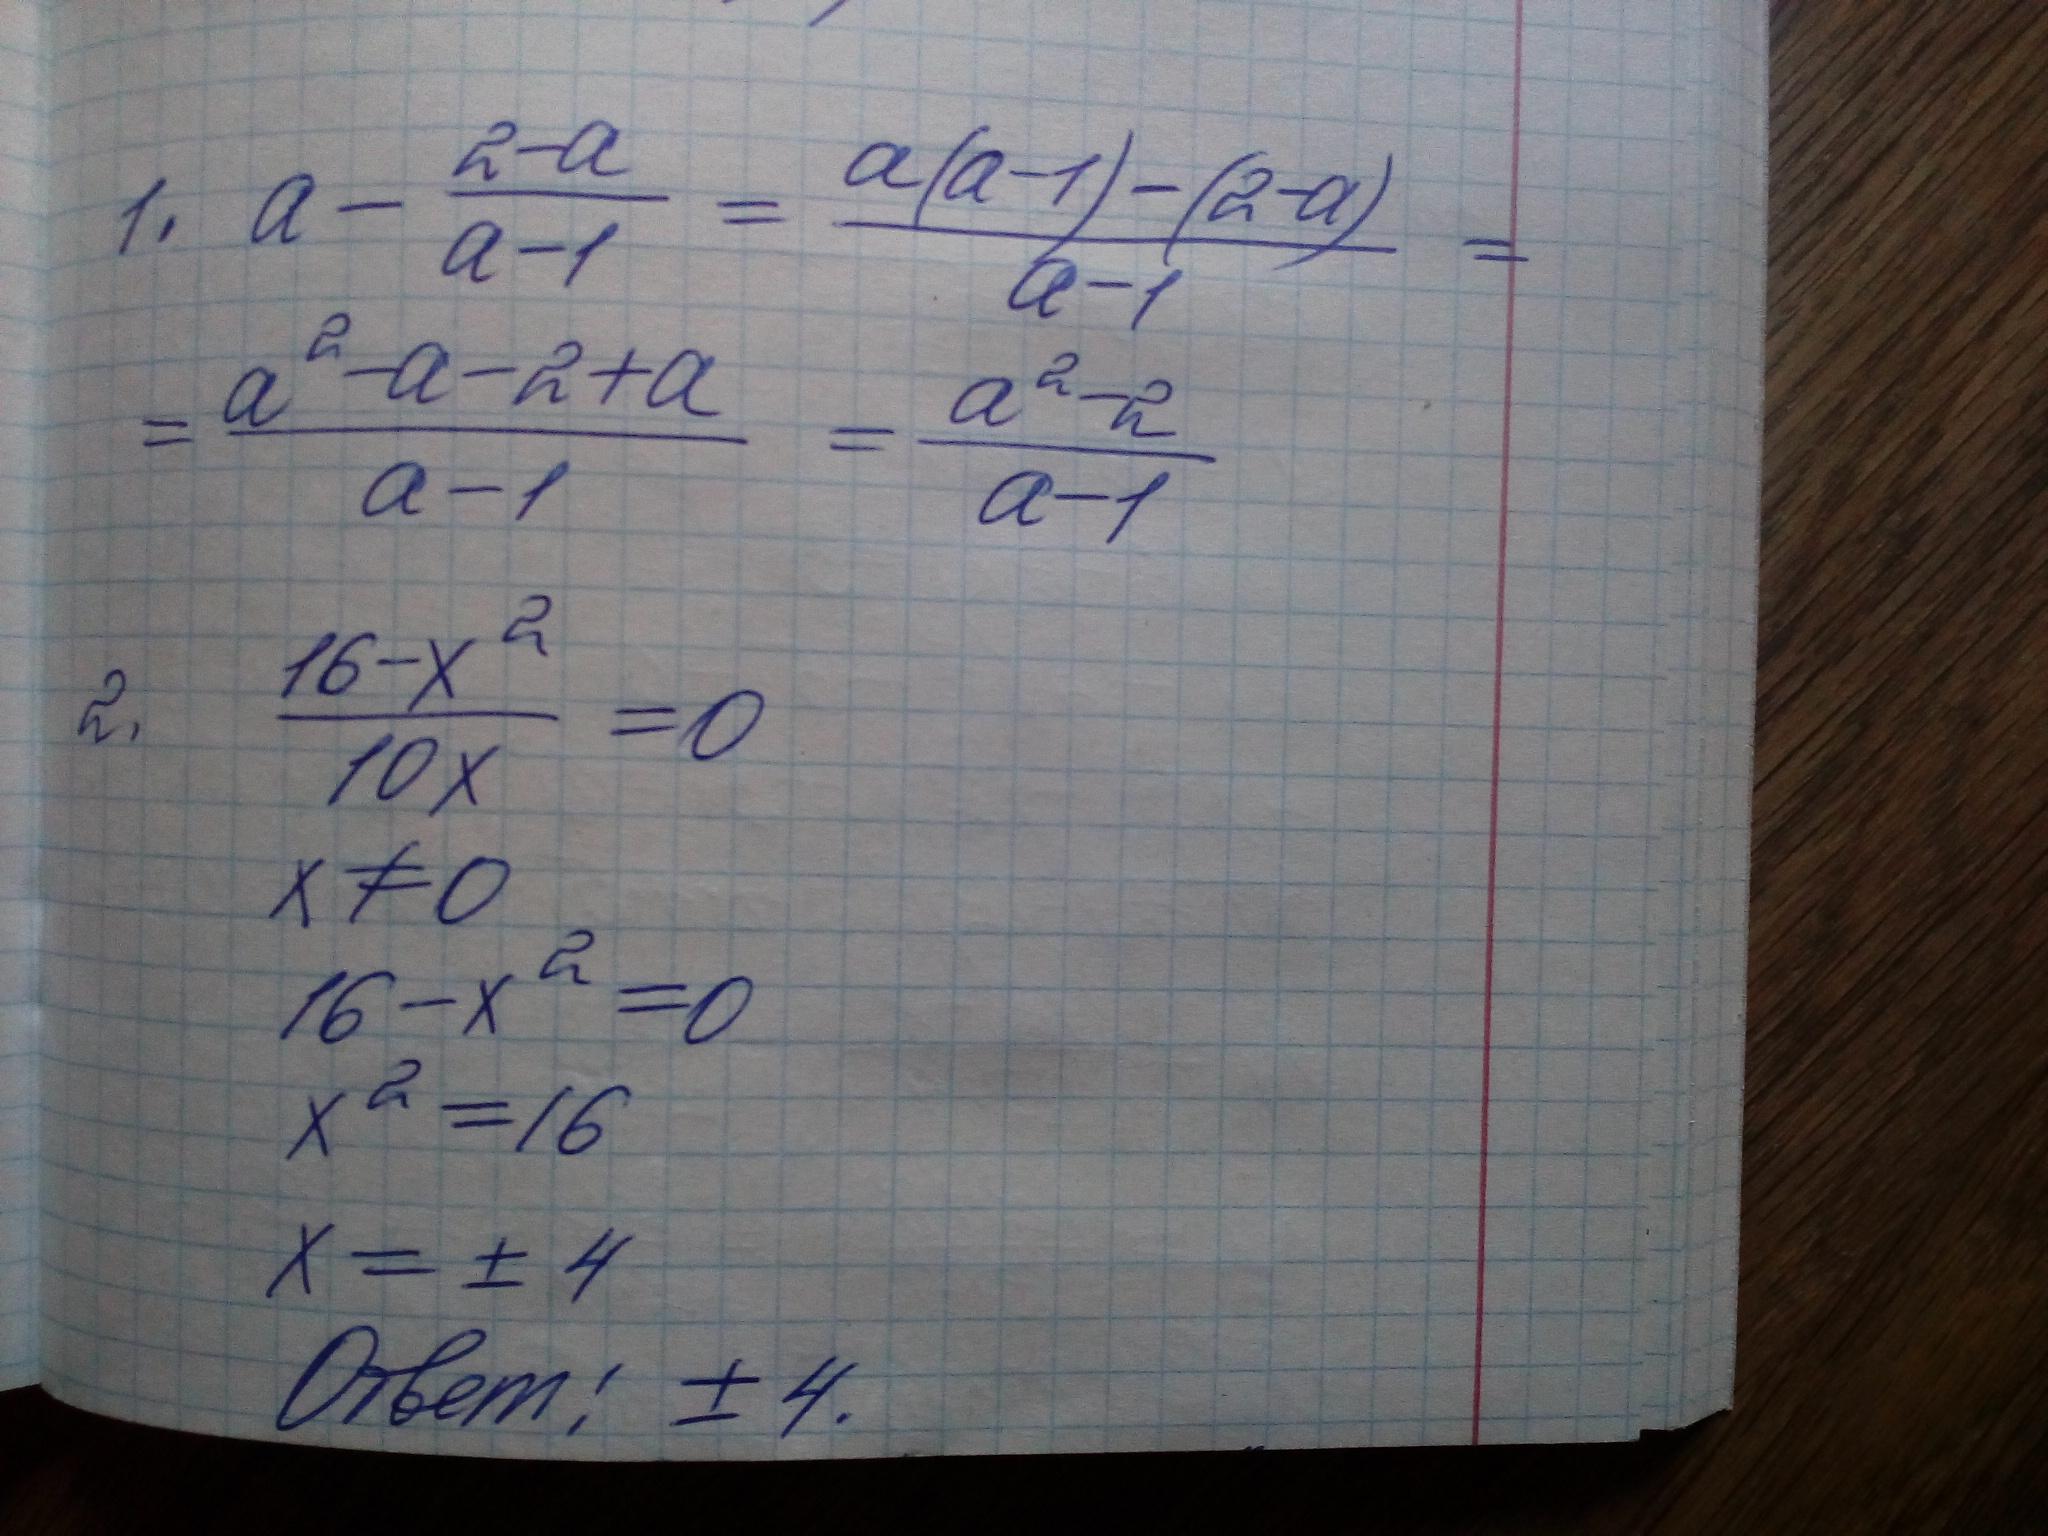 1. a - (2-a)/(a-1) = (a(a-1)-(2-a))/(a-1) =
= (a²-a-2+a)/(a-1) = (a²-2)/(a-1)
2. (16-x²)/(10x) = 0
x ≠ 0
16 - x² = 0
x² = 16
x = ± 4
Ответ: ± 4.